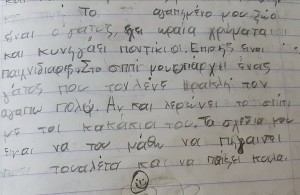 Το αγαπημένο μου ζώο
είναι ο γάτος, έχει ωραία χρώματα
και κυνηγάει ποντίκια. Επισης ειναι
παιχνιδιαρης. Στο σπίτι μου υπάρχει ένας
γάτος που τον λένε Ηρακλή τον
αγαπω πολύ. Αν και λερώνει το σπίτι
με τα κακάκια του. Τα σχέδια μου
ειναι να του μάθω να πηγαινει
τουαλέτα και να παίζει καλα.